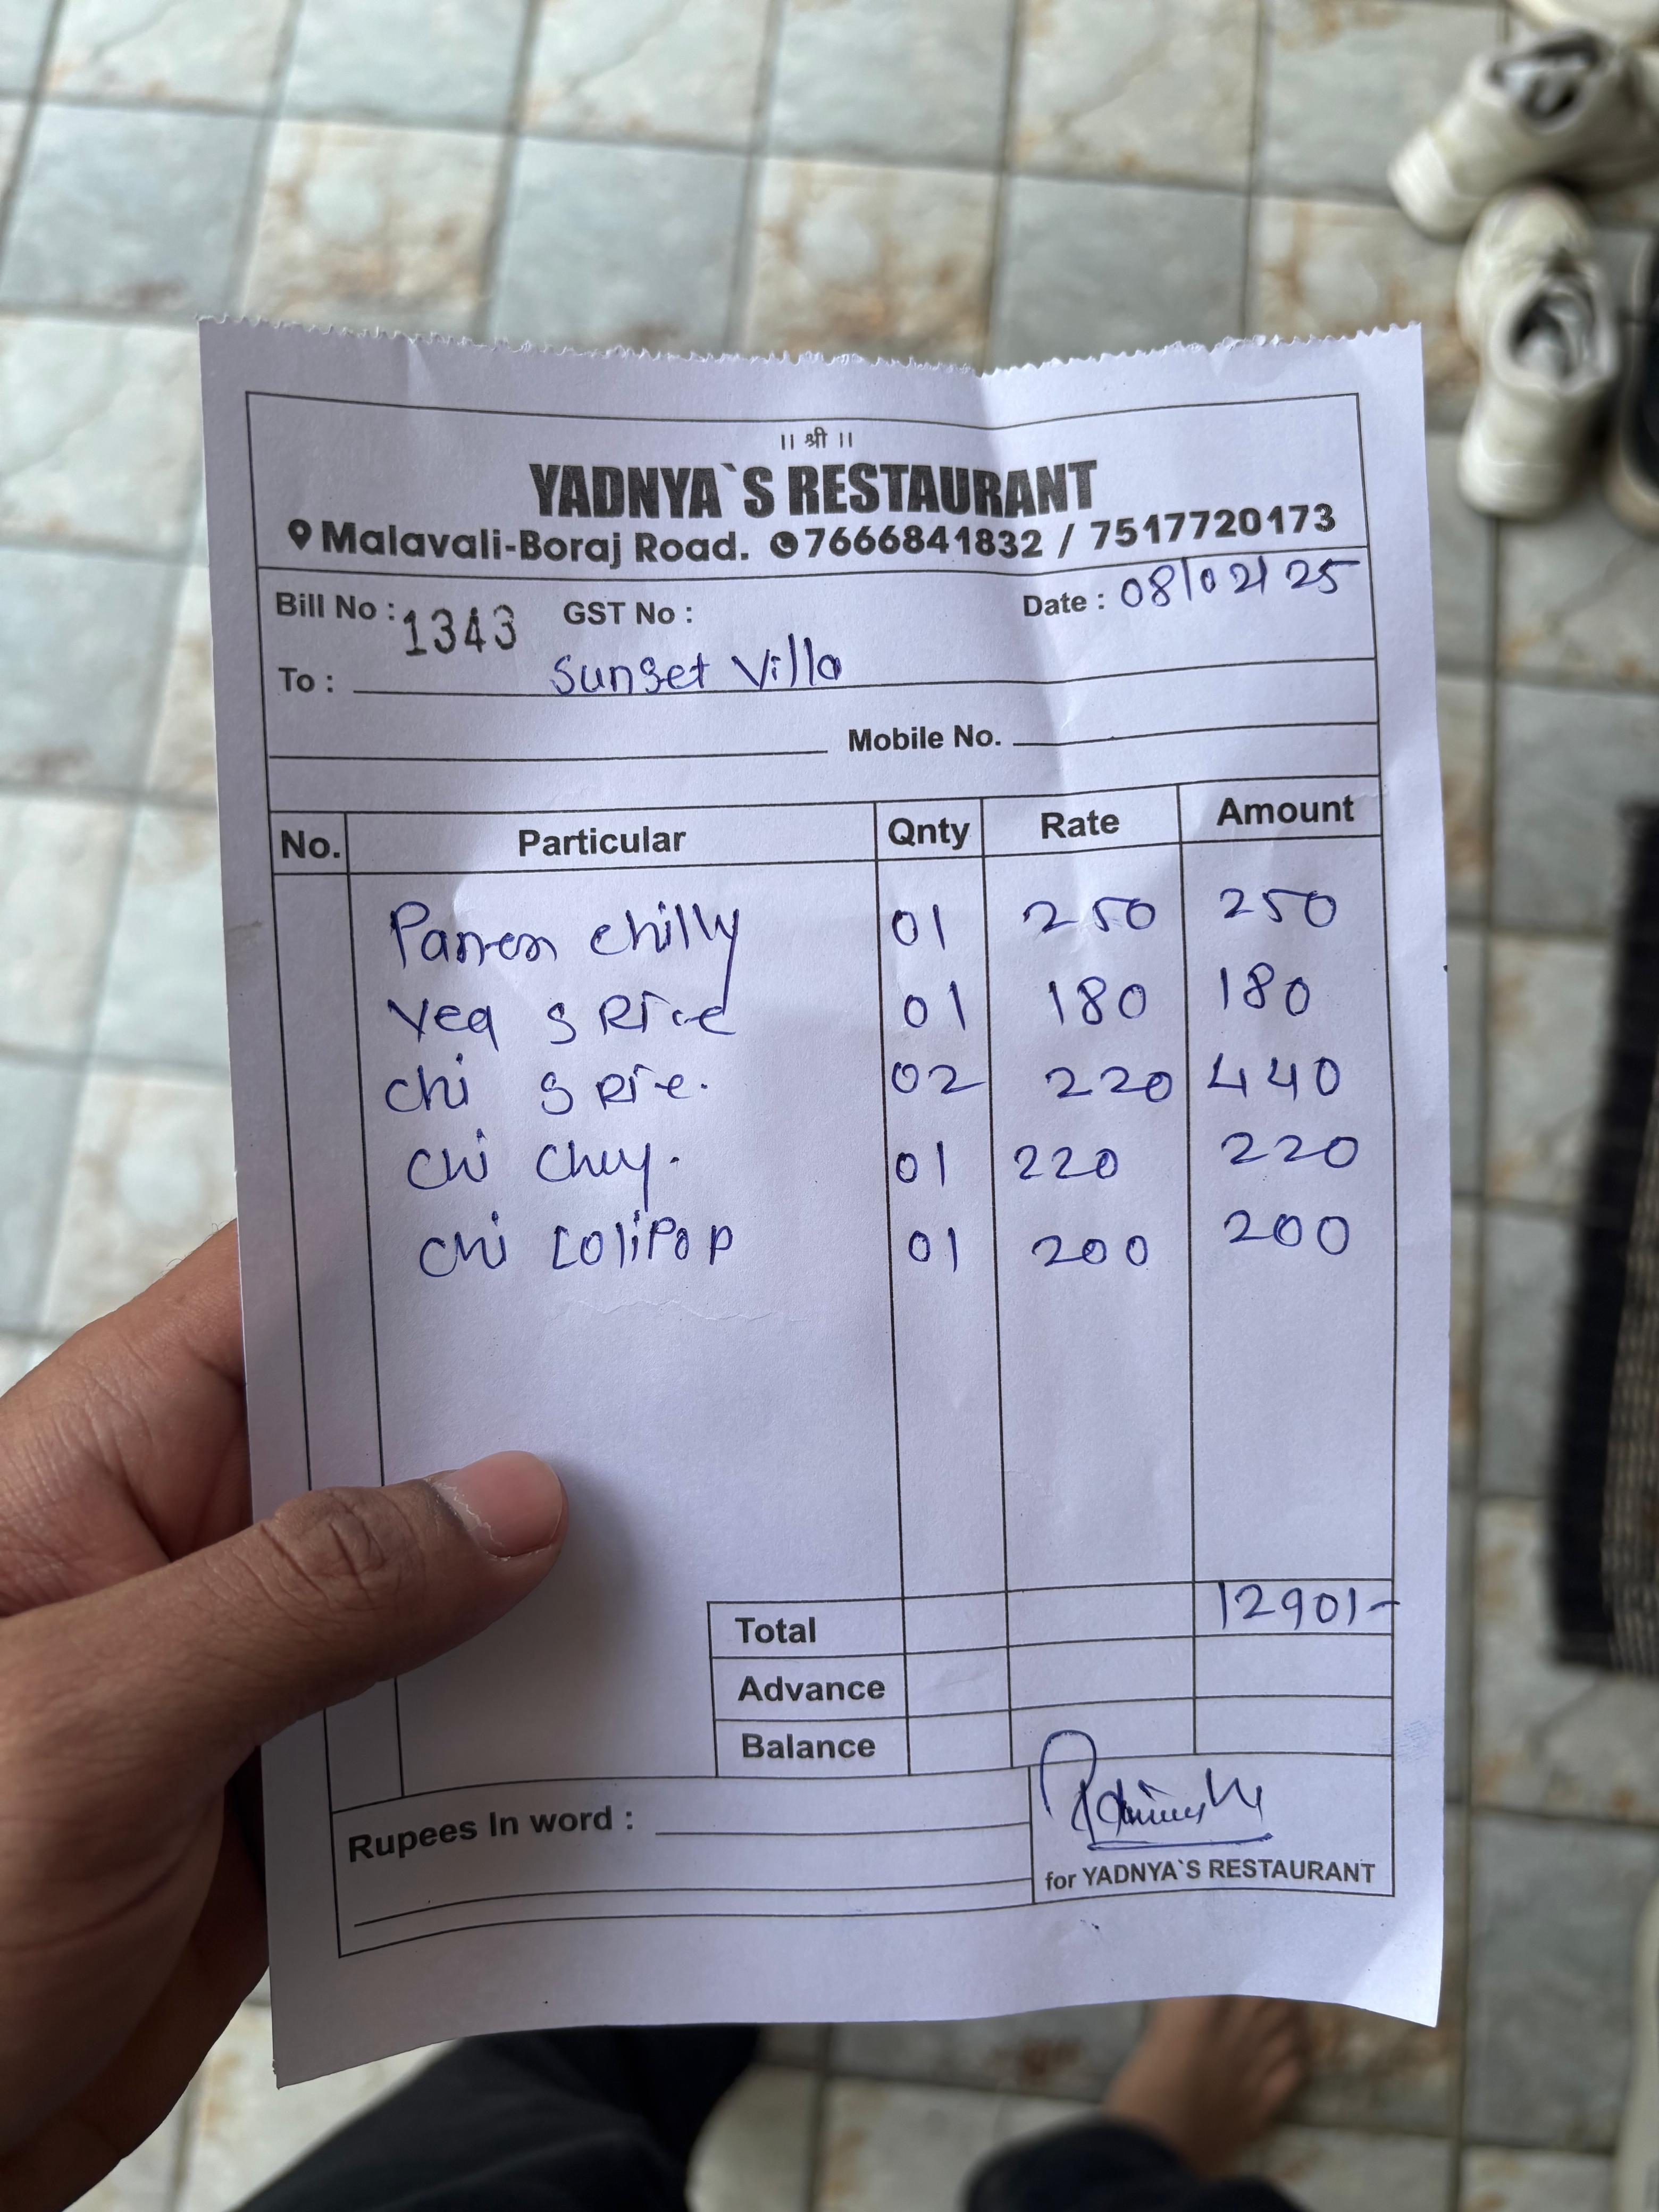 ॥ श्री ॥
YADNYA`S RESTAURANT
Malavali-Boraj Road. 7666841832 / 7517720173
Bill No : 1343 GST No : Date : 08/02/25
To : Sunset Villa
Mobile No.
No. Particular Qnty Rate Amount
Panren chilly 01 250 250
Veg S Rice 01 180 180
chi S Rie. 02 220 440
chi 01 220 220
chi Lolipop 01 200 200
Total 1290/-
Advance
Balance
Rupees In word :
for YADNYA`S RESTAURANT